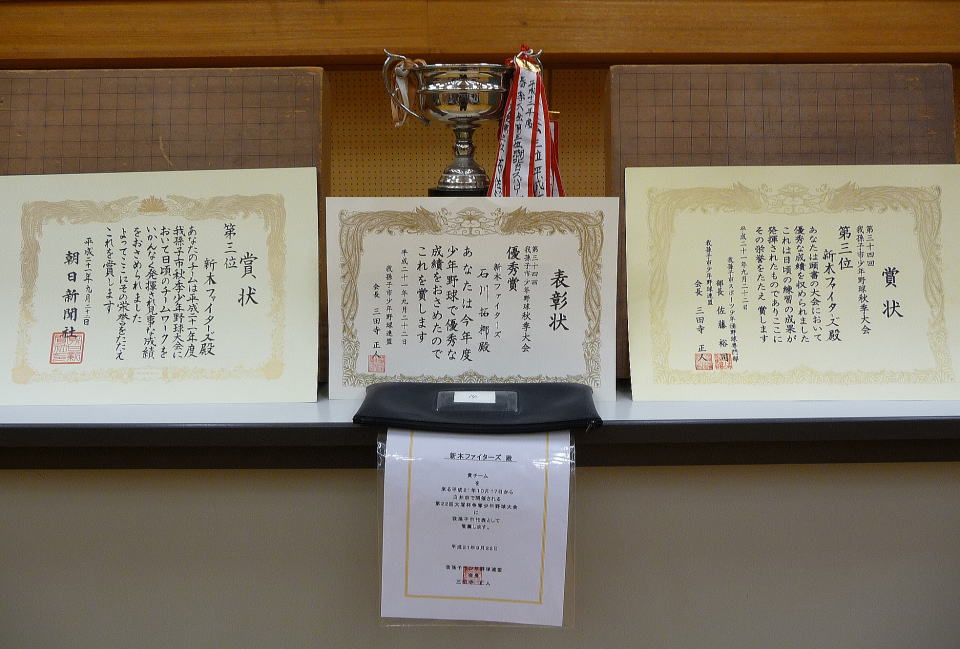 賞状
第三位
新木ファイターズ殿
あなたのチームは平成二十一年度
我孫子市秋季少年野球大会に
おいて日頃のチームワークを
いかんなく発揮され見事な成績
をおさめられました
よってここにその栄誉をたたえ
これを賞します
平成二十一年九月二十二日
朝日新聞社
表彰状
第三十四回
我孫子市少年野球秋季大会
優秀賞
新木ファイターズ
石川拓椰殿
あなたは今年度
少年野球で優秀な
成績をおさめたので
これを賞します
平成二十一年九月二十二日
我孫子市少年野球連盟
会長 三田寺 正人
賞状
第三十四回
我孫子市少年野球秋季大会
第三位
新木ファイターズ殿
あなたは頭書の大会において
優秀な成績を収められました
これは日頃の練習の成果が
発揮されたものでありここに
その栄誉をたたえ賞します
平成二十一年九月二十二日
我孫子市スポーツ少年団野球専門部
部長 佐藤 裕司
我孫子市少年野球連盟
会長 三田寺 正人
新木ファイターズ 殿
貴チーム
を
来る平成21年10月17日から
白井市で開催される
第22回大塚杯争奪少年野球大会
に
我孫子市代表として
推薦します。
平成21年9月22日
我孫子市少年野球連盟
会長
三田寺 正人